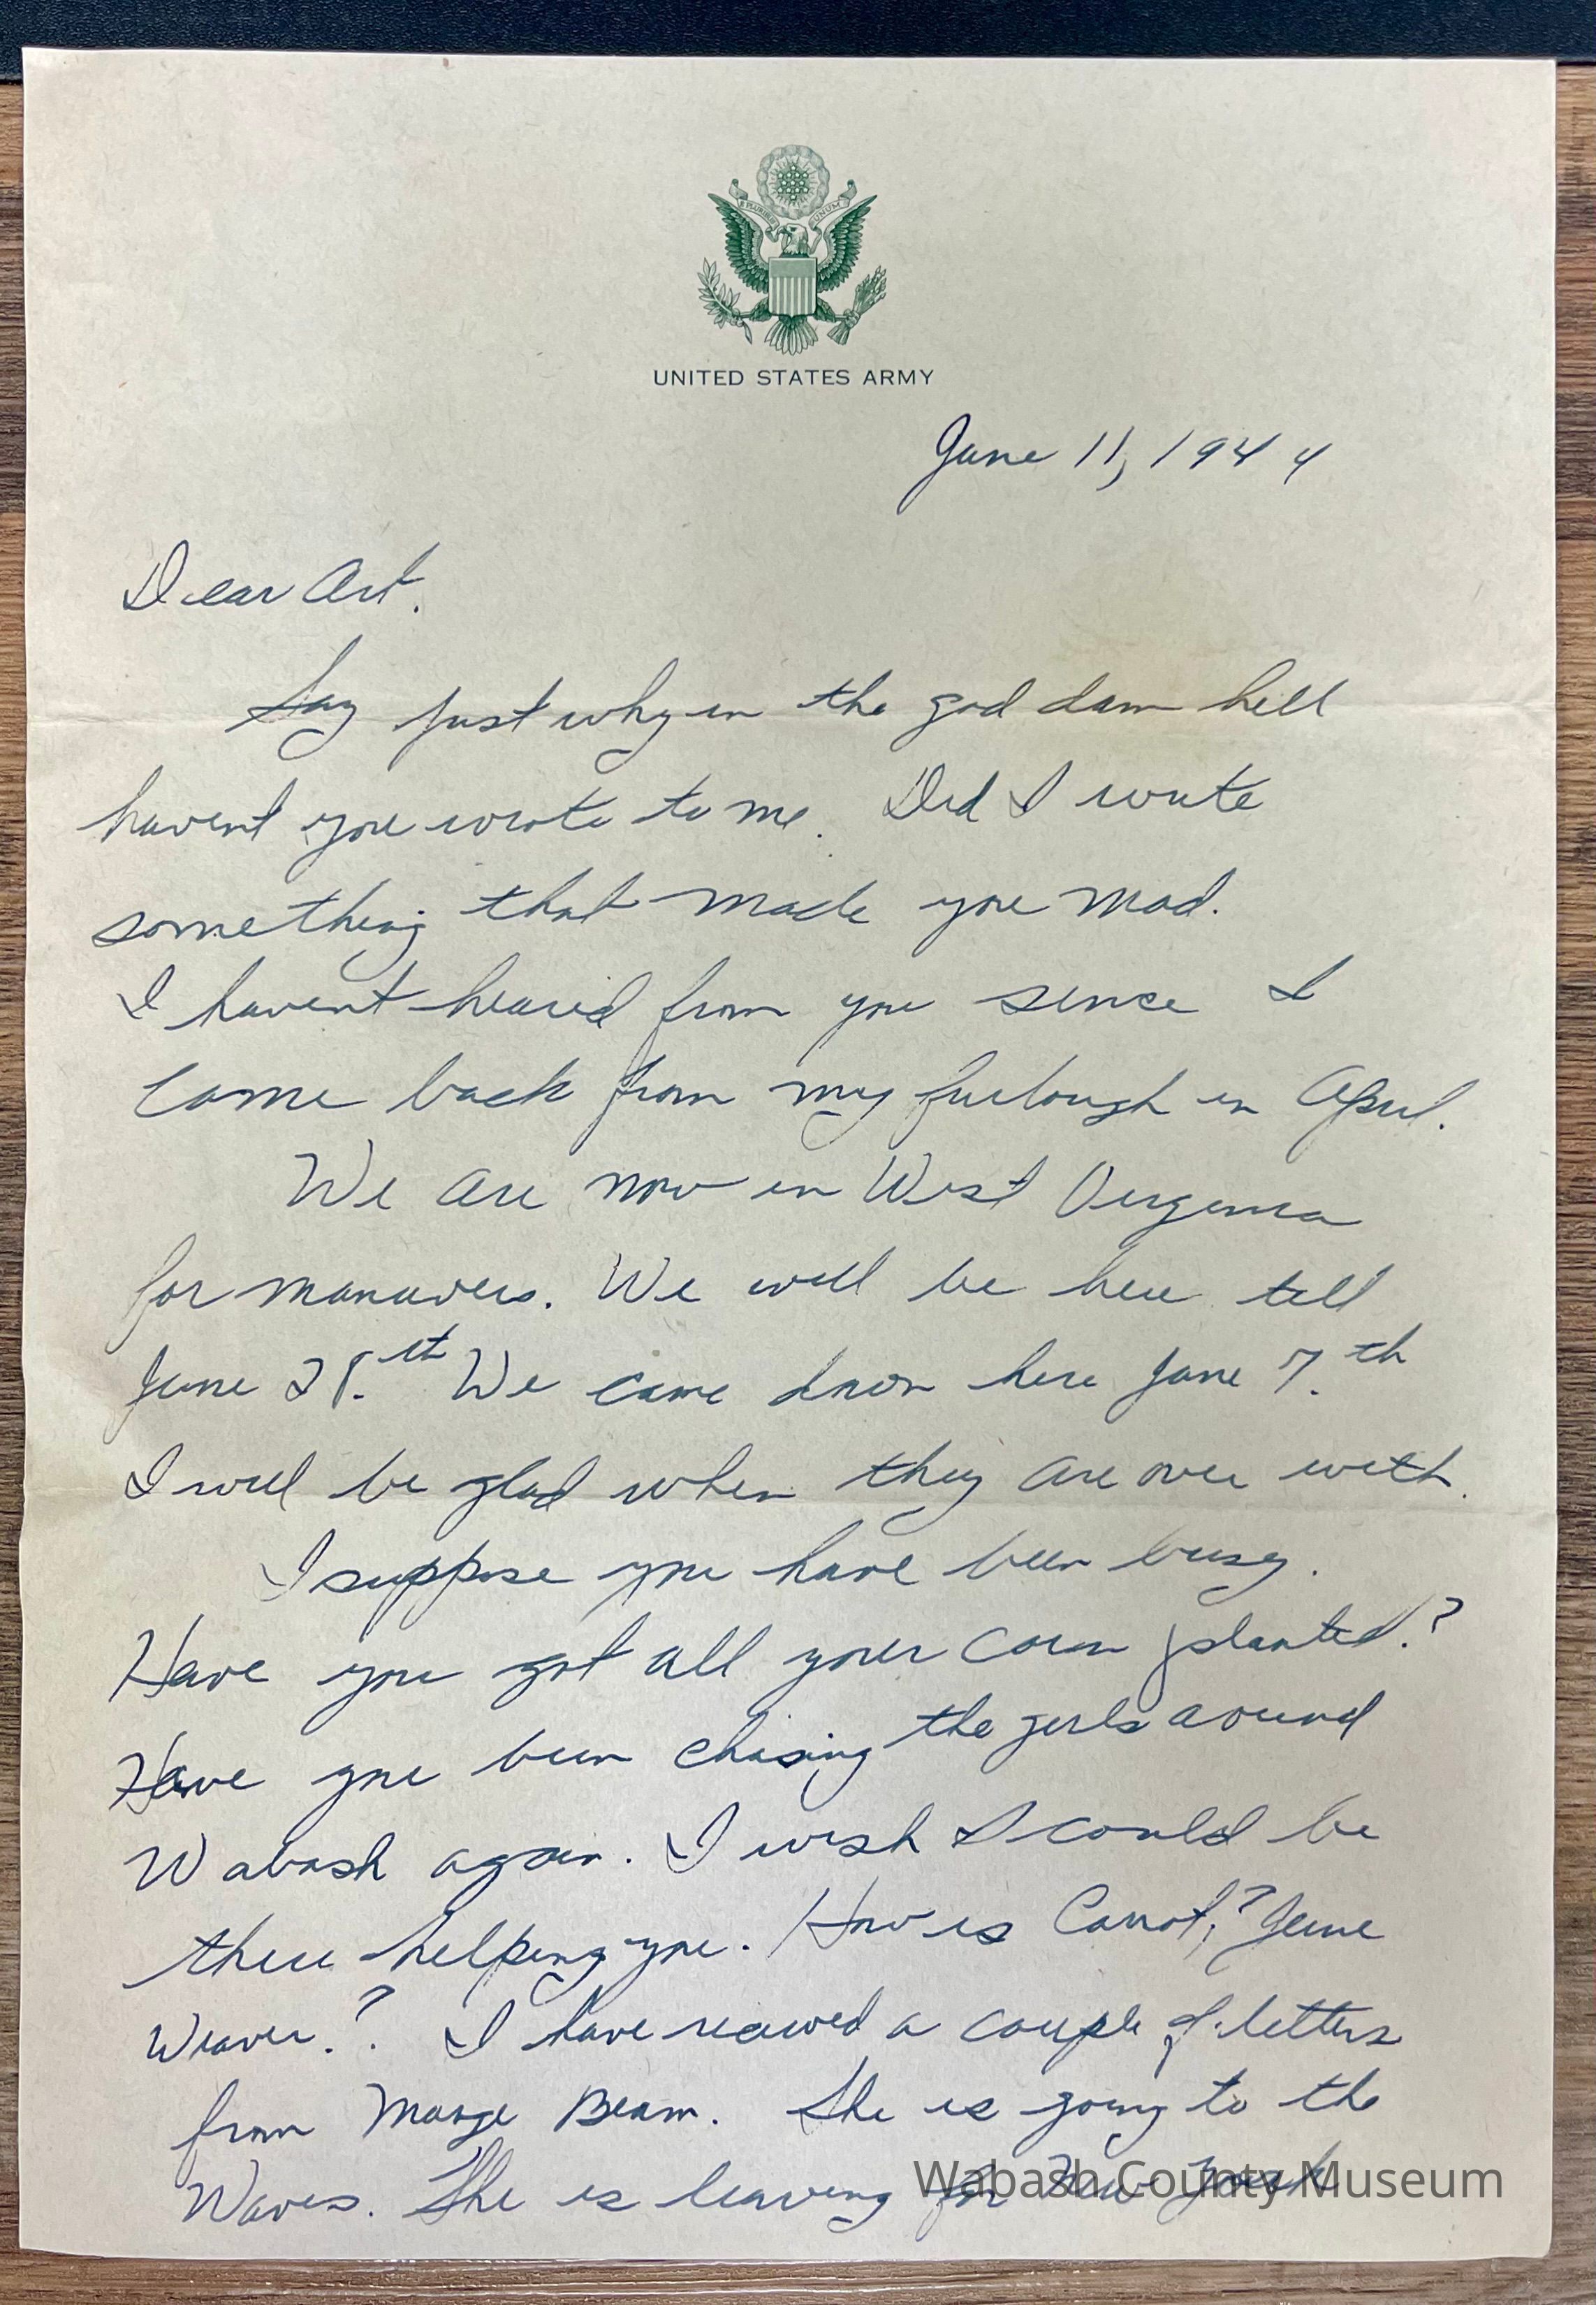 E PLURIBUS UNUM
UNITED STATES ARMY
June 11, 1944
Dear Art.
Say just why in the god dam hell
havent you wrote to me. Did I wrote
something that made you mad.
I havent heared from you sence I
come back from my furlough in April.
We are now in West Virginia
for manuvers. We will be here till
June 28.th We came down here June 7.th
I will be glad when they are over with.
I suppose you have been busy.
Have you got all your corn planted.?
Have you been chasing the girls around
Wabash again. I wish I could be
there helping you. How is Carrot,? Jeune
Weaver.? I have recived a couple of letters
from Marge Beam. She is going to the
Waves. She is leaving for New York
Wabash County Museum